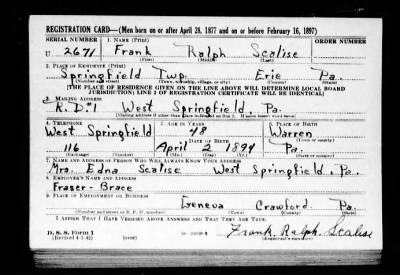 REGISTRATION CARD—(Men born on or after April 28, 1877 and on or before February 16, 1897)
SERIAL NUMBER 1. NAME (Print) ORDER NUMBER
U 2671 Frank Ralph Scalise
(First) (Middle) (Last)
2. PLACE OF RESIDENCE (Print)
Springfield Twp. Erie Pa.
(Number and street) (Town, township, village, or city) (County) (State)
[THE PLACE OF RESIDENCE GIVEN ON THE LINE ABOVE WILL DETERMINE LOCAL BOARD
JURISDICTION; LINE 2 OF REGISTRATION CERTIFICATE WILL BE IDENTICAL]
3. MAILING ADDRESS
R.D.1 West Springfield, Pa.
[Mailing address if other than place indicated on line 2. If same insert word same]
4. TELEPHONE 5. AGE IN YEARS 6. PLACE OF BIRTH
West Springfield 48 Warren
DATE OF BIRTH (Town or county)
116 April 2 1894 Pa.
(Exchange) (Number) (Mo.) (Day) (Yr.) (State or country)
7. NAME AND ADDRESS OF PERSON WHO WILL ALWAYS KNOW YOUR ADDRESS
Mrs. Edna Scalise West Springfield, Pa.
8. EMPLOYER'S NAME AND ADDRESS
Fraser-Brace
9. PLACE OF EMPLOYMENT OR BUSINESS
Geneva Crawford Pa.
(Number and street or R. F. D. number) (Town) (County) (State)
I AFFIRM THAT I HAVE VERIFIED ABOVE ANSWERS AND THAT THEY ARE TRUE.
D. S. S. Form 1
(Revised 4-1-42) (over) Frank Ralph Scalise
(Registrant's signature)